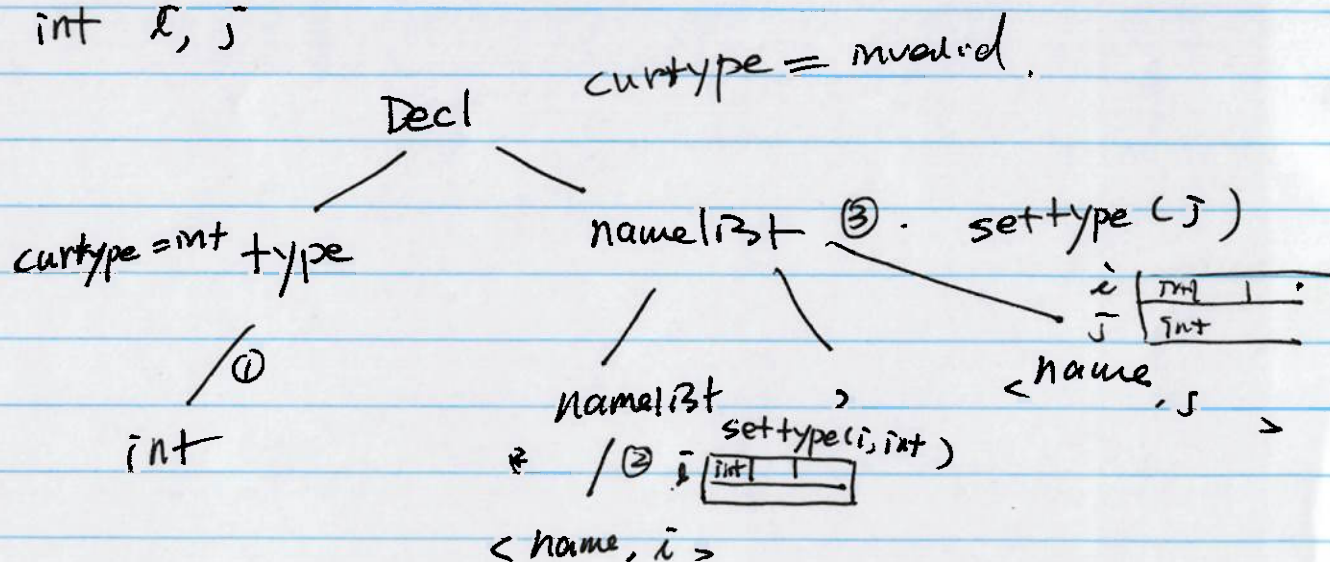 int i, j
curtype = invalid.
Decl
curtype = int type
namelist ③. settype(j)
i int
j int
①
int
namelist , <name, j>
② i settype(i, int)
int
<name, i>